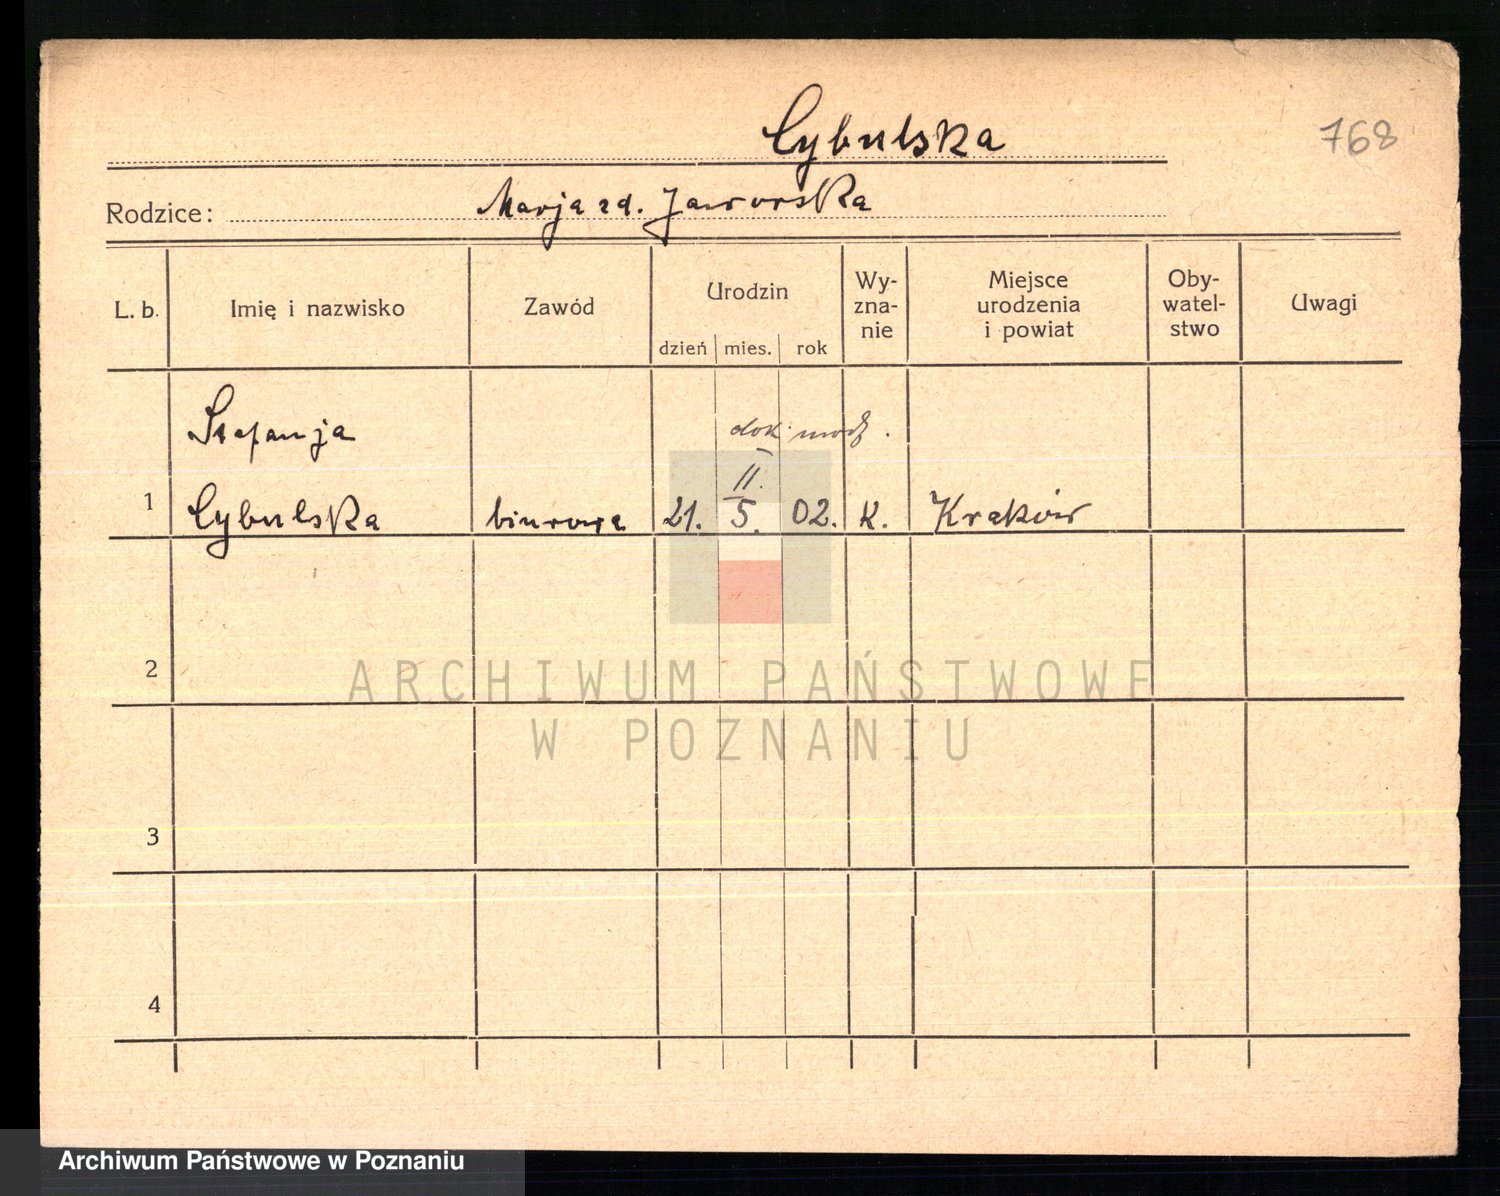 Cybulska
768
Rodzice: Marja zd. Jaworska
L. b. Imię i nazwisko Zawód Urodzin Wy-zna-nie Miejsce urodzenia i powiat Oby-watel-stwo Uwagi
dzień mies. rok
Stefanja
dok.
II.
1 Cybulska biurowa 21. 5. 02. K. Kraków
2
3
4
ARCHIWUM PAŃSTWOWE
W POZNANIU
Archiwum Państwowe w Poznaniu